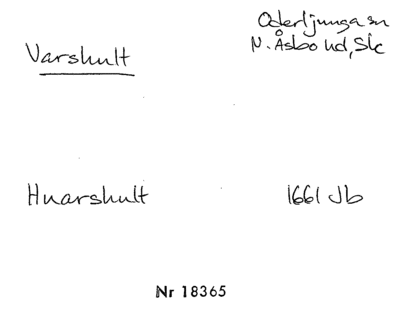 Varshult
Oderljunga sn
N. Åsbo hd, Sk
Huarshult 1661 Jb
Nr 18365